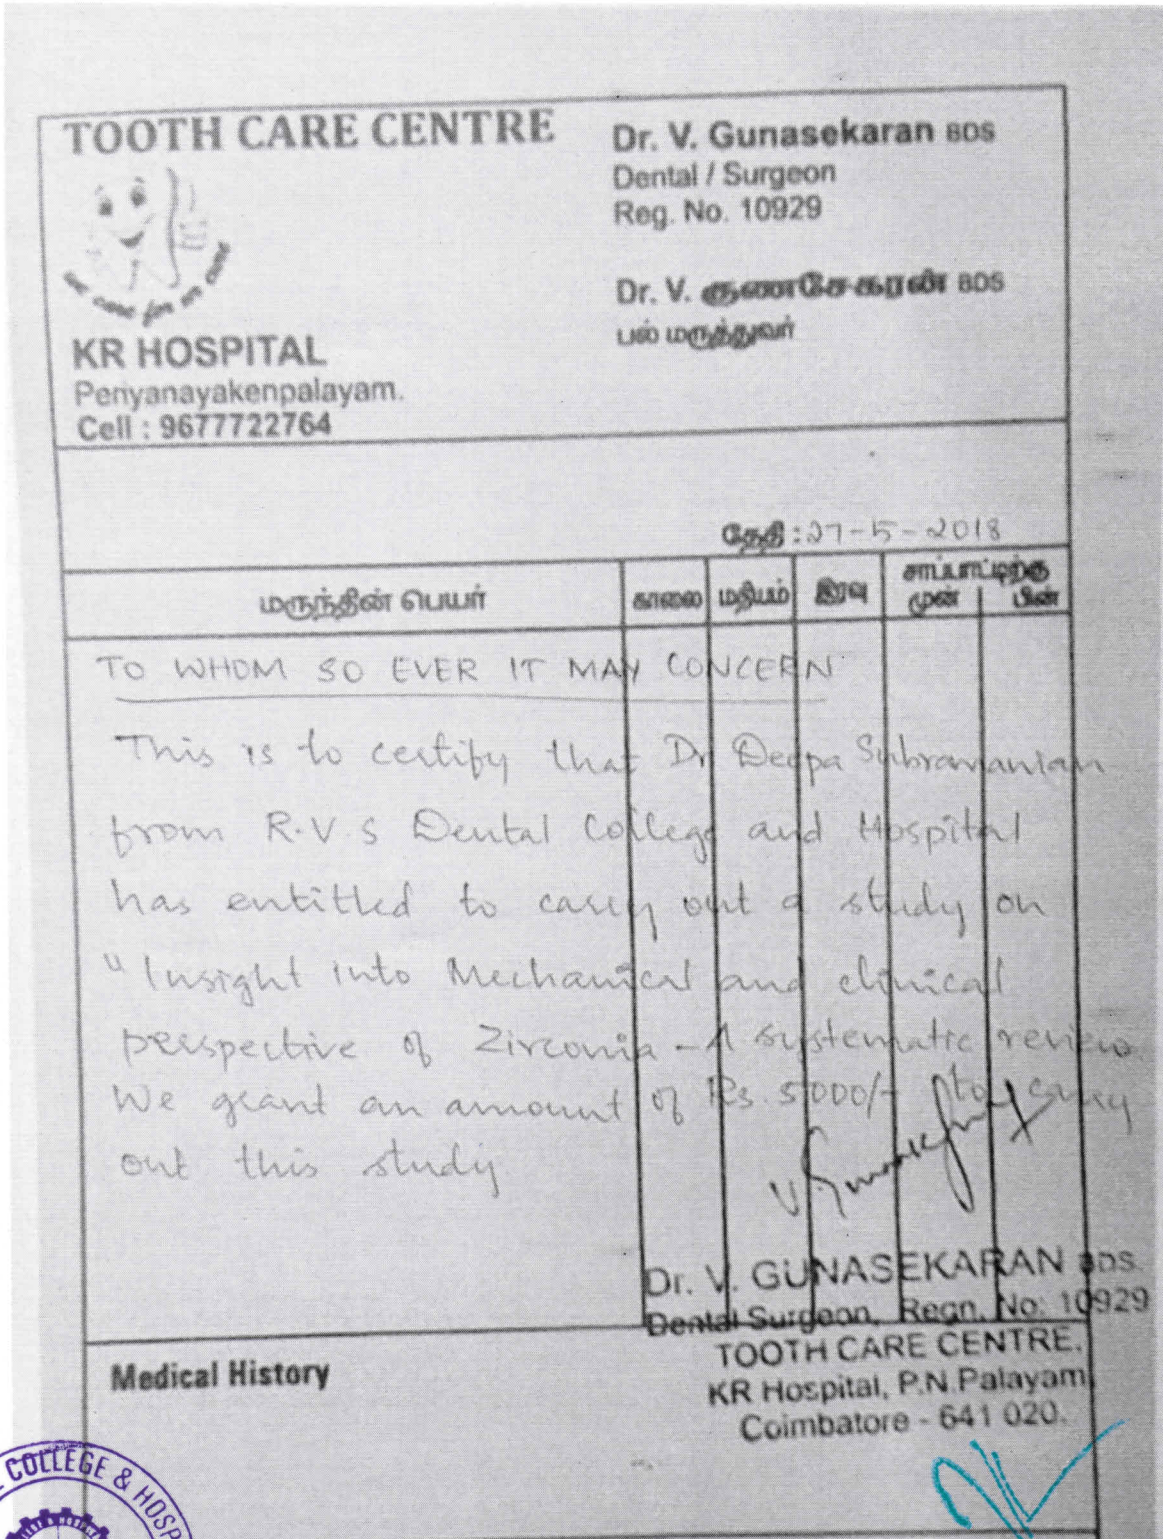 TOOTH CARE CENTRE
we care for we cure
KR HOSPITAL
Periyanayakenpalayam.
Cell : 9677722764
Dr. V. Gunasekaran BDS
Dental / Surgeon
Reg. No. 10929
Dr. V. குணசேகரன் BDS
பல் மருத்துவர்
தேதி : 27-5-2018
மருந்தின் பெயர் காலை மதியம் இரவு சாப்பாட்டிற்கு முன் பின்
TO WHOM SO EVER IT MAY CONCERN
This is to certify that Dr Deepa Subramanian
from R.V.S Dental College and Hospital
has entitled to carry out a study on
"Insight into Mechanical and clinical
perspective of Zirconia - A systematic review.
We grant an amount of Rs. 5000/- to carry
out this study
V. Gunasekaran
Dr. V. GUNASEKARAN BDS.
Dental Surgeon, Regn. No: 10929
TOOTH CARE CENTRE.
KR Hospital, P.N.Palayam
Coimbatore - 641 020.
Medical History
COLLEGE & HOSP